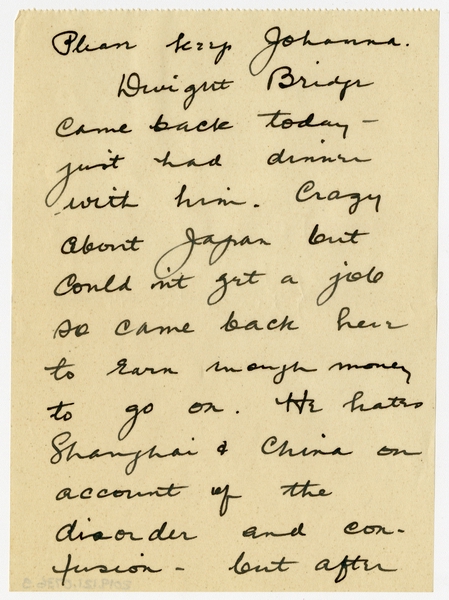 Please keep Johanna.
Dwight Bridge
came back today -
just had dinner
with him. Crazy
about Japan but
could n't get a job
so came back here
to earn enough money
to go on. He hates
Shanghai & China on
account of the
disorder and con-
fusion - but after